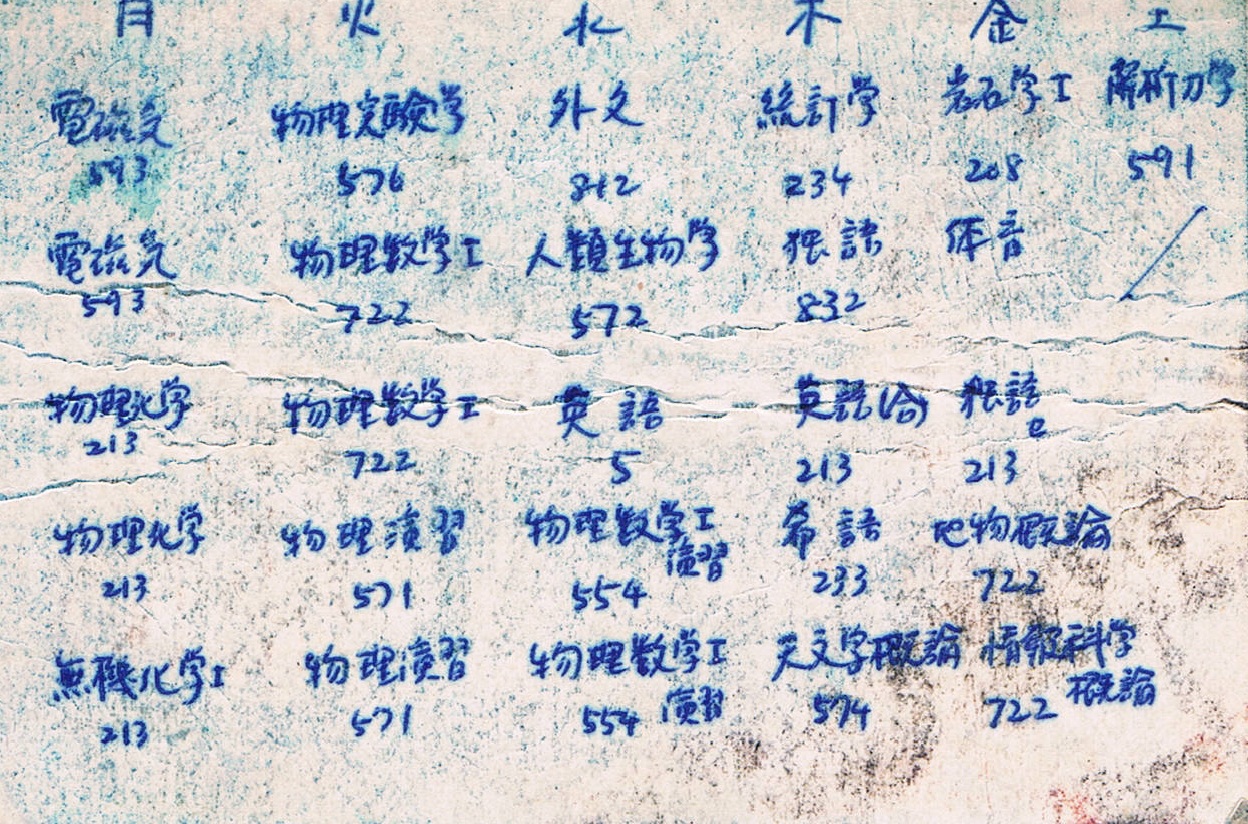 月 火 水 木 金 土
電磁気 物理実験学 外文 統計学 岩石学I 解析力学
593 576 812 234 208 591
電磁気 物理数学I 人類生物学 独語 体育
593 722 572 832
物理化学 物理数学I 英語 英語(合) 独語e
213 722 5 213 213
物理化学 物理演習 物理数学I演習 希語 地物概論
213 571 554 233 722
無機化学I 物理演習 物理数学I演習 天文学概論 情報科学概論
213 571 554 574 722